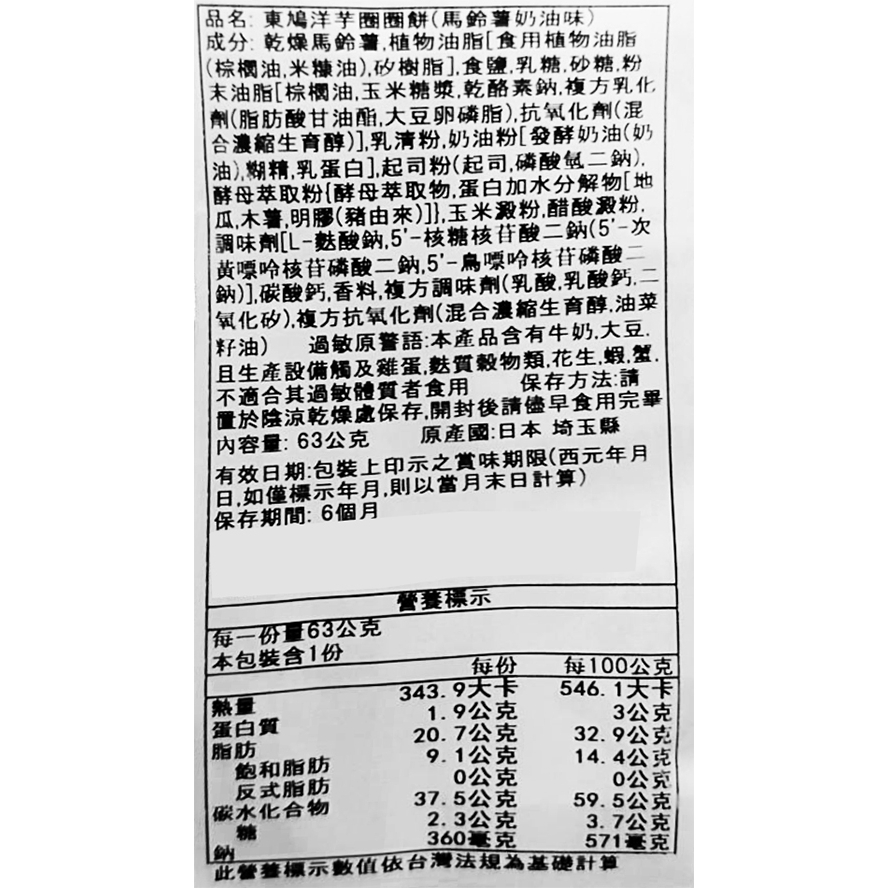 品名: 東鳩洋芋圈圈餅(馬鈴薯奶油味)
成分: 乾燥馬鈴薯,植物油脂[食用植物油脂
(棕櫚油,米糠油),矽樹脂],食鹽,乳糖,砂糖,粉
末油脂[棕櫚油,玉米糖漿,乾酪素鈉,複方乳化
劑(脂肪酸甘油酯,大豆卵磷脂),抗氧化劑(混
合濃縮生育醇)],乳清粉,奶油粉[發酵奶油(奶
油),糊精,乳蛋白],起司粉(起司,磷酸氫二鈉),
酵母萃取粉{酵母萃取物,蛋白加水分解物[地
瓜,木薯,明膠(豬由來)]},玉米澱粉,醋酸澱粉,
調味劑[L-麩酸鈉,5'-核糖核苷酸二鈉(5'-次
黃嘌呤核苷磷酸二鈉,5'-鳥嘌呤核苷磷酸二
鈉)],碳酸鈣,香料,複方調味劑(乳酸,乳酸鈣,二
氧化矽),複方抗氧化劑(混合濃縮生育醇,油菜
籽油) 過敏原警語:本產品含有牛奶,大豆,
且生產設備觸及雞蛋,麩質穀物類,花生,蝦,蟹,
不適合其過敏體質者食用 保存方法:請
置於陰涼乾燥處保存,開封後請儘早食用完畢
內容量: 63公克 原產國:日本 埼玉縣
有效日期:包裝上印示之賞味期限(西元年月
日,如僅標示年月,則以當月末日計算)
保存期間: 6個月
營養標示
每一份量63公克
本包裝含1份
每份 每100公克
熱量 343.9大卡 546.1大卡
蛋白質 1.9公克 3公克
脂肪 20.7公克 32.9公克
飽和脂肪 9.1公克 14.4公克
反式脂肪 0公克 0公克
碳水化合物 37.5公克 59.5公克
糖 2.3公克 3.7公克
鈉 360毫克 571毫克
此營養標示數值依台灣法規為基礎計算